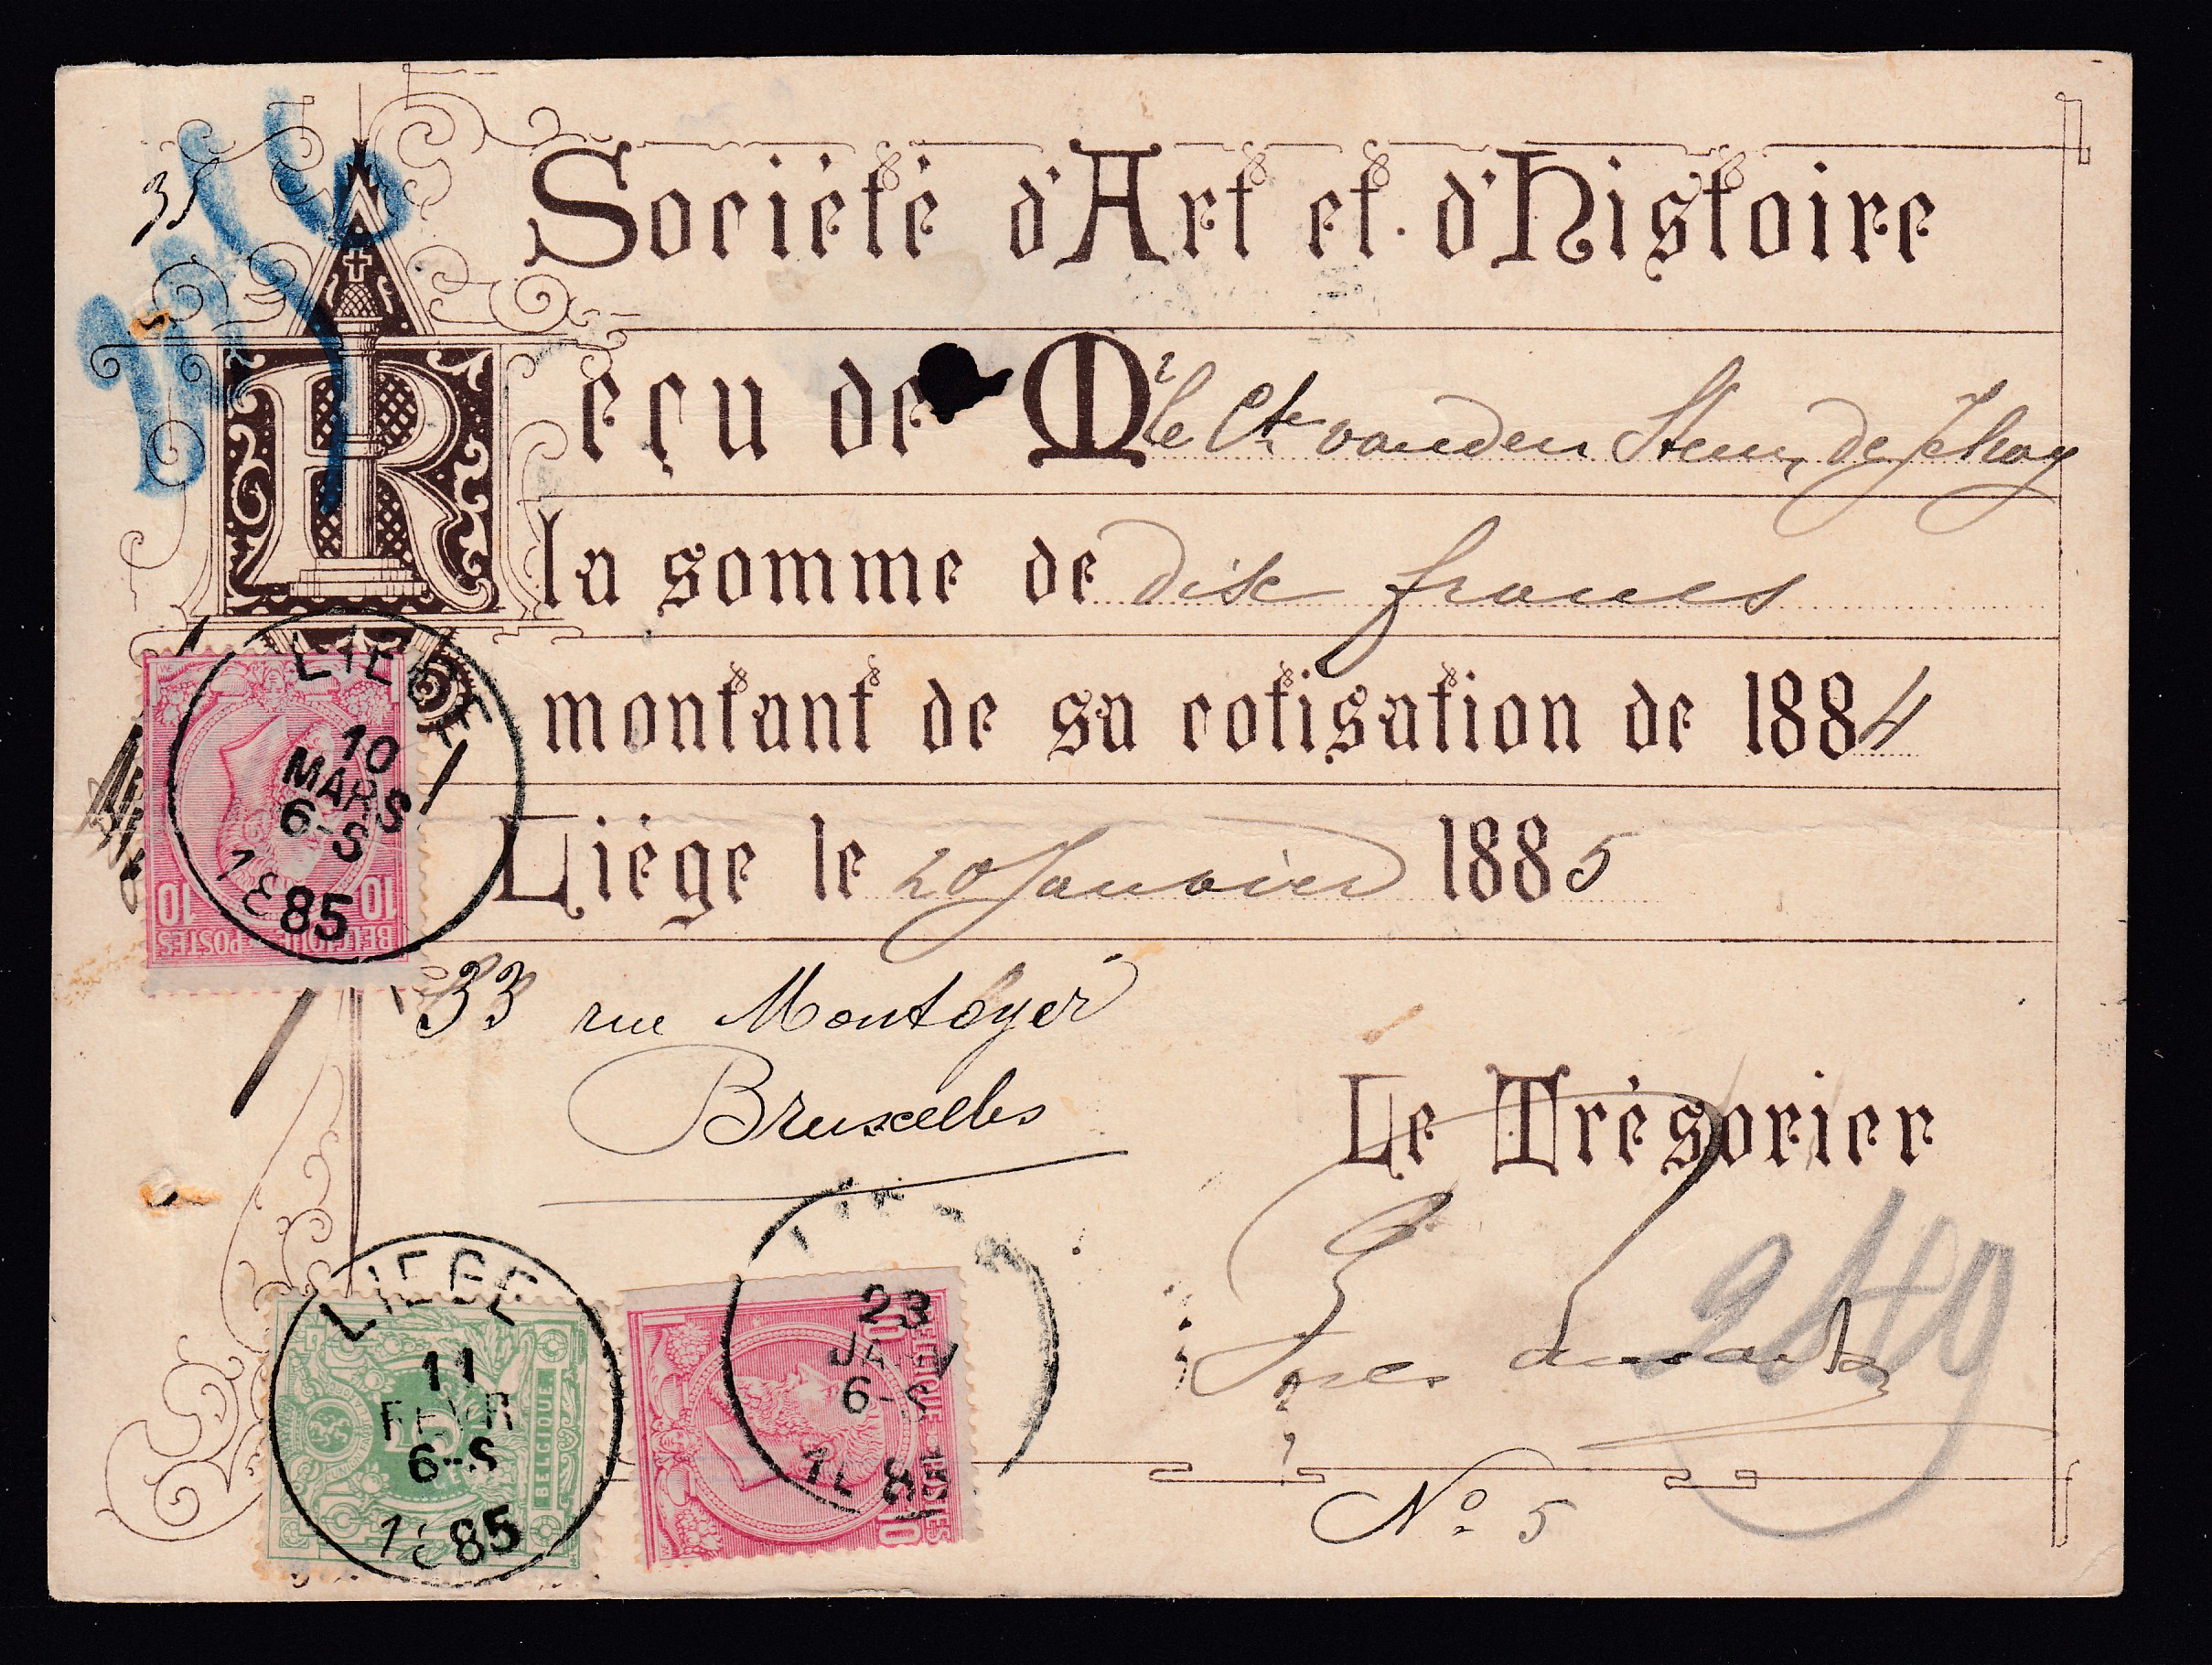 35
Société d'Art et d'Histoire
Reçu de Mr le Cte vanden Steen de Jehay
la somme de dix francs
montant de sa cotisation de 1884
Liége le 20 Janvier 1885
33 rue Montoyer
Bruxelles
Le Trésorier
No 5
LIEGE
10
MARS
6-S
1885
10 10
BELGIQUE POSTES
LIEGE
11
FEVR
6-S
1885
BELGIQUE
23
JANV
6-S
1885
10 10
BELGIQUE POSTES